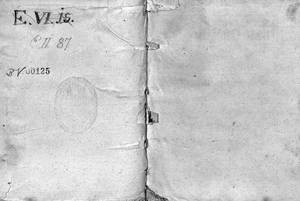 E. VI. 15.
C II 87
BV 00125